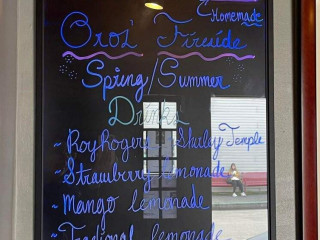 Homemade
Oroz' Fireside
Spring/Summer
Drinks
~ Roy Rogers / Shirley Temple
~ Strawberry lemonade
~ Mango lemonade
~ Tradional lemonade